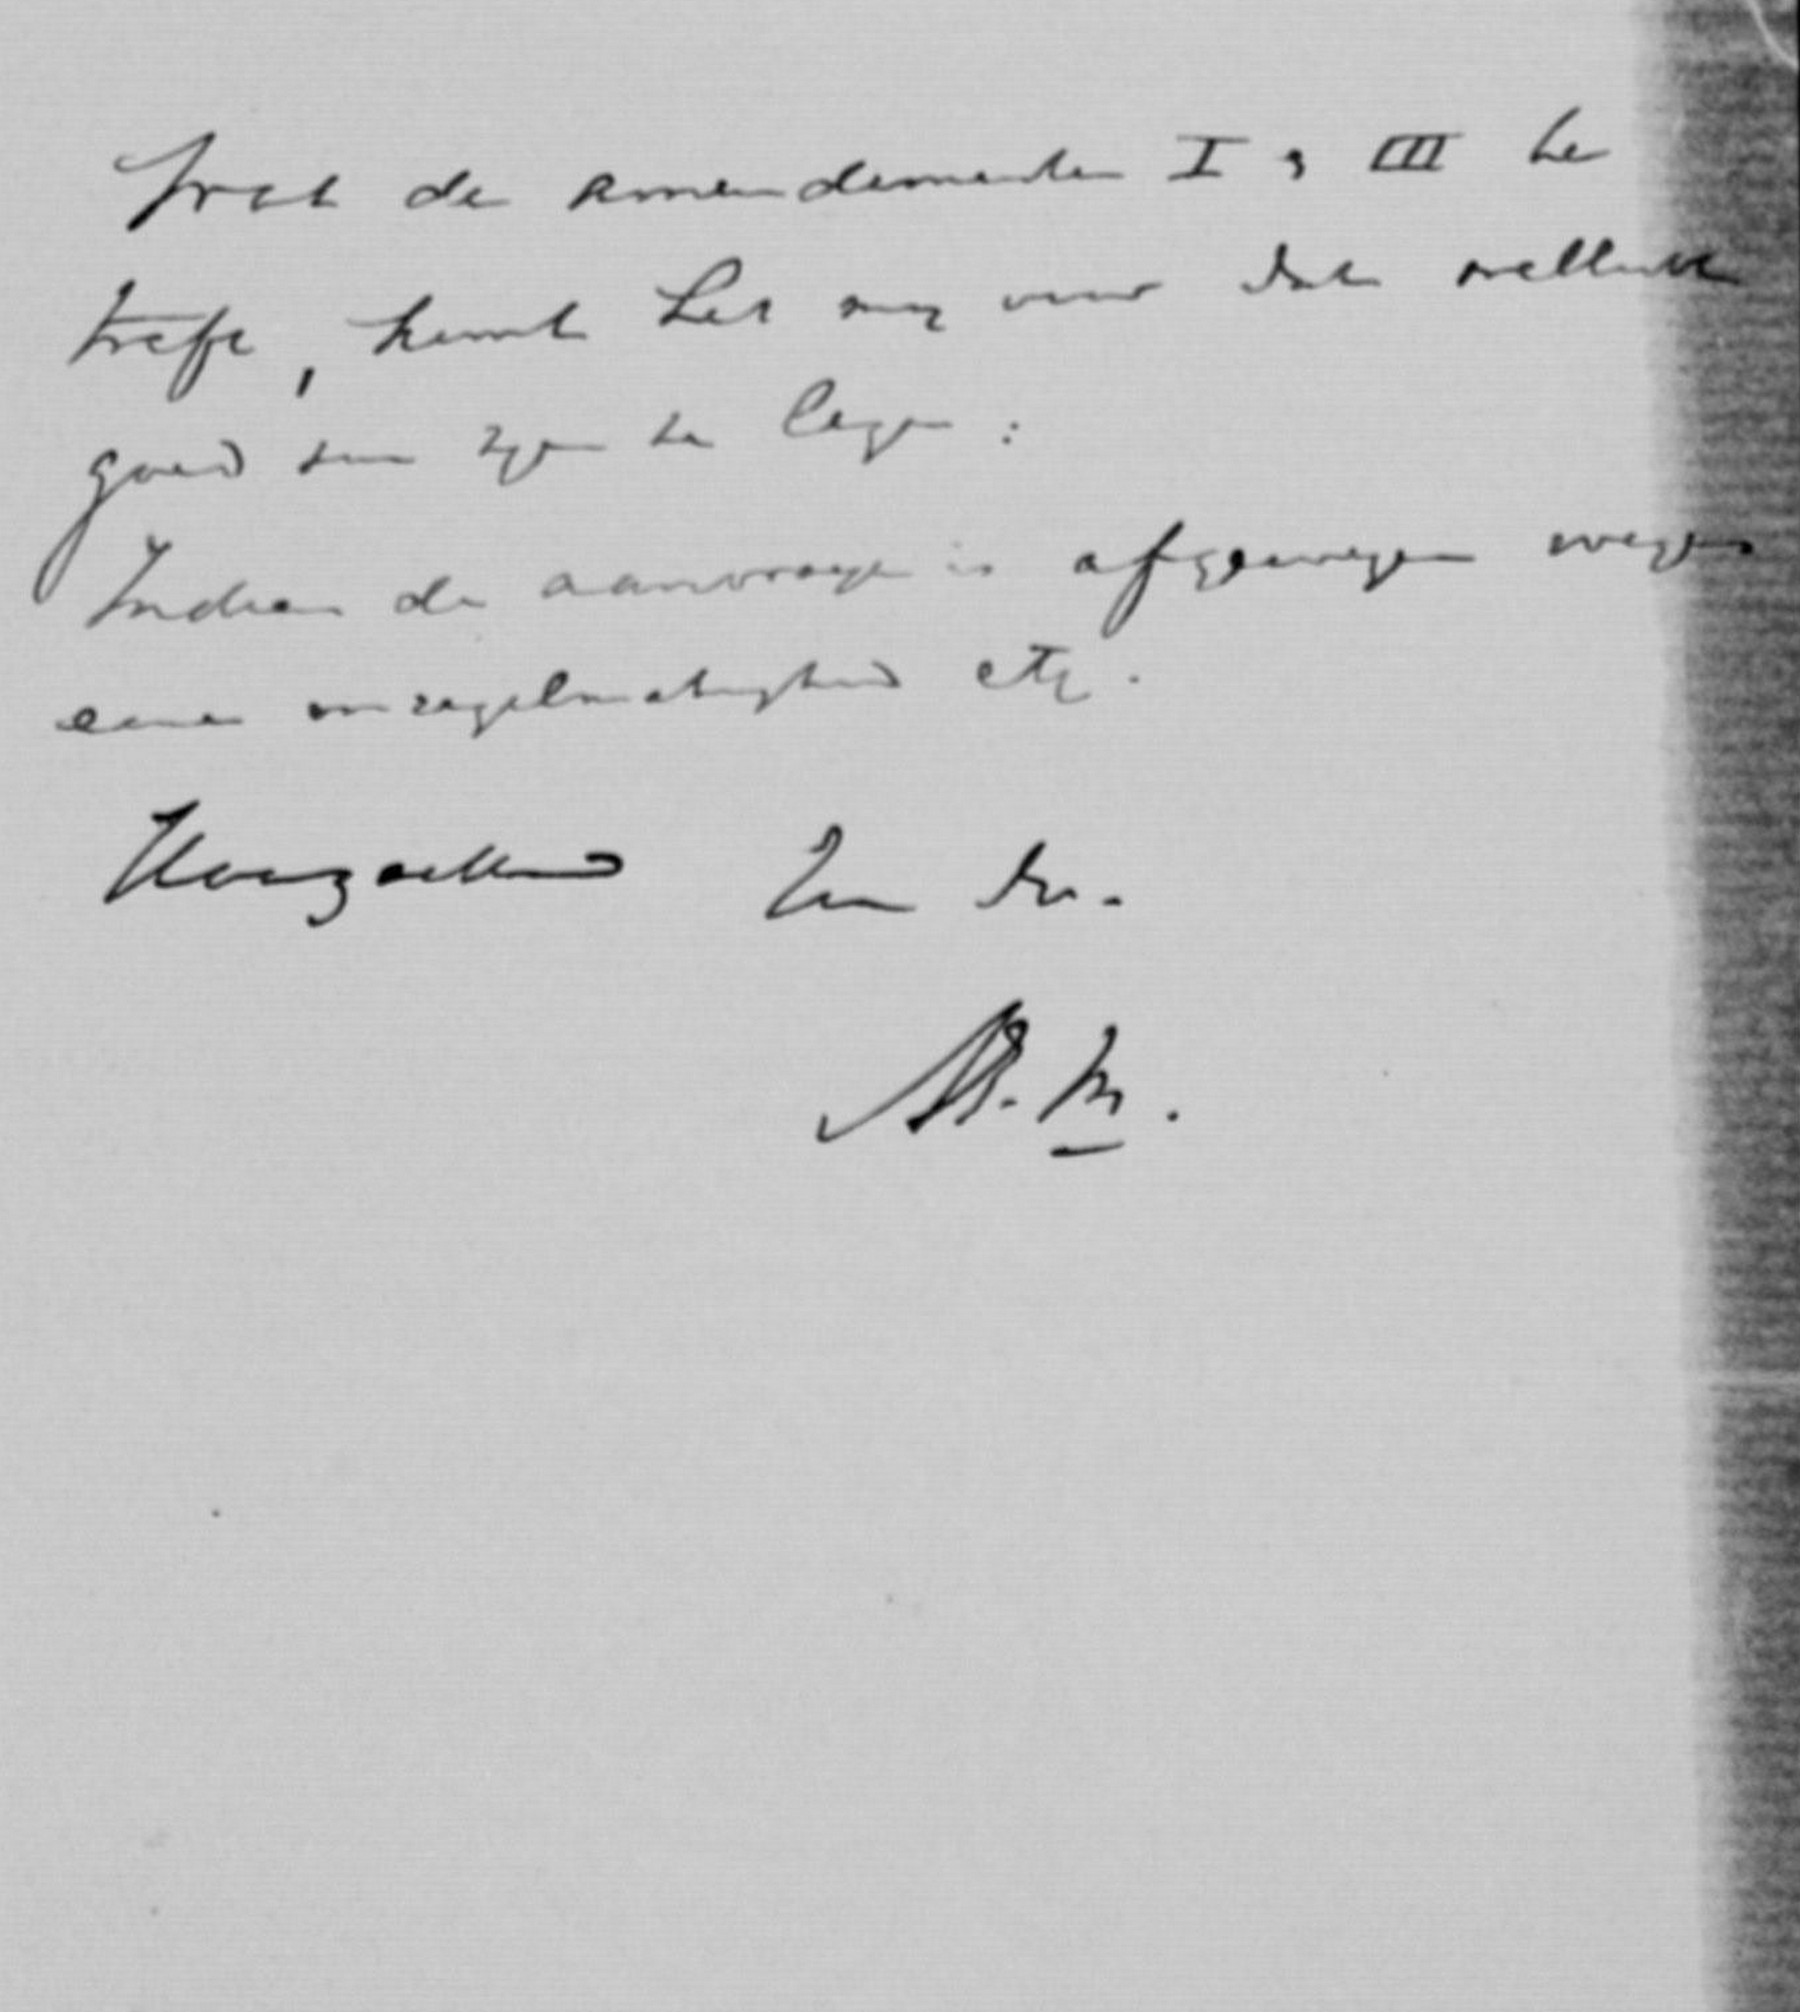 Wat de amendementen I & III be
treft, komt het mij voor dat wellicht
goed zou zijn te lezen:
Indien de aanvrage is afgewezen wegens
eene onregelmatigheid etc.
Hoogachtend